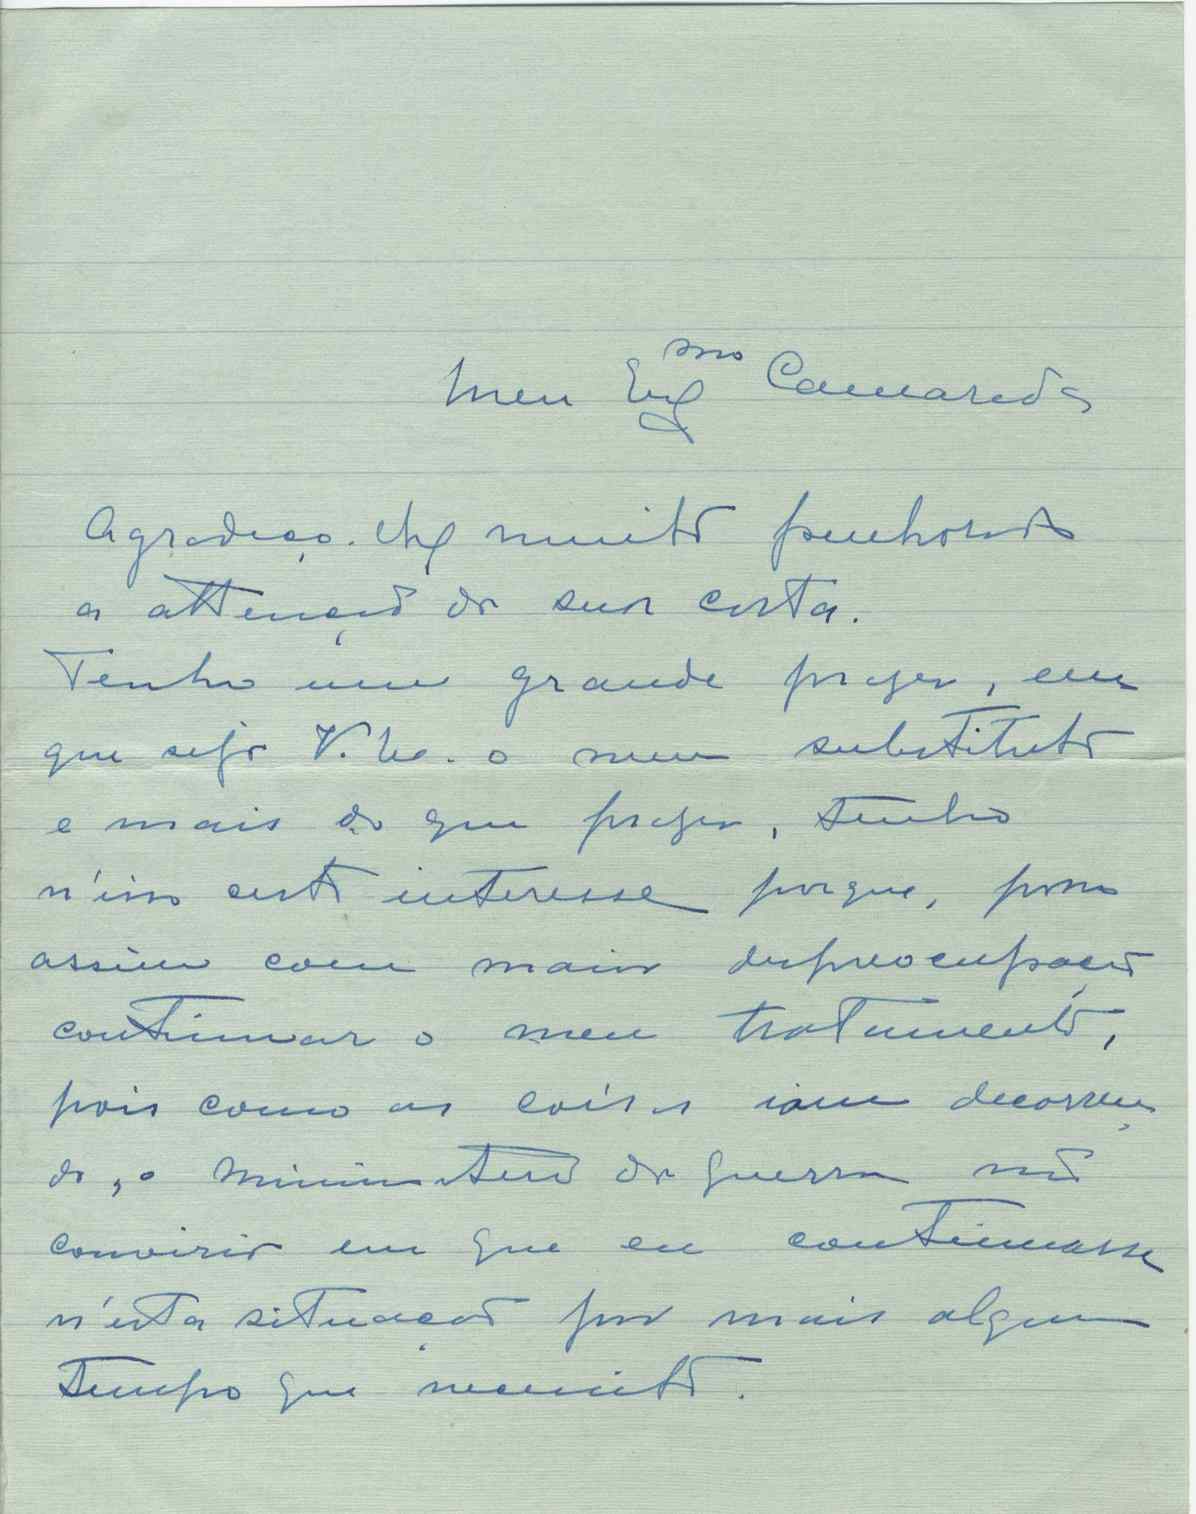 Meu Exmo Camarada
Agradeço-lhe muito penhorado
a attenção da sua carta.
Tenho um grande prazer, em
que seja V. Ex. o meu substituto
e mais do que prazer, tenho
n'isso certo interesse porque, posso
assim com maior despreocupação
continuar o meu tratamento,
pois como as coisas iam decorren
do, o Ministerio da Guerra não
conviria em que eu continuasse
n'esta situação por mais algum
tempo que necessito.